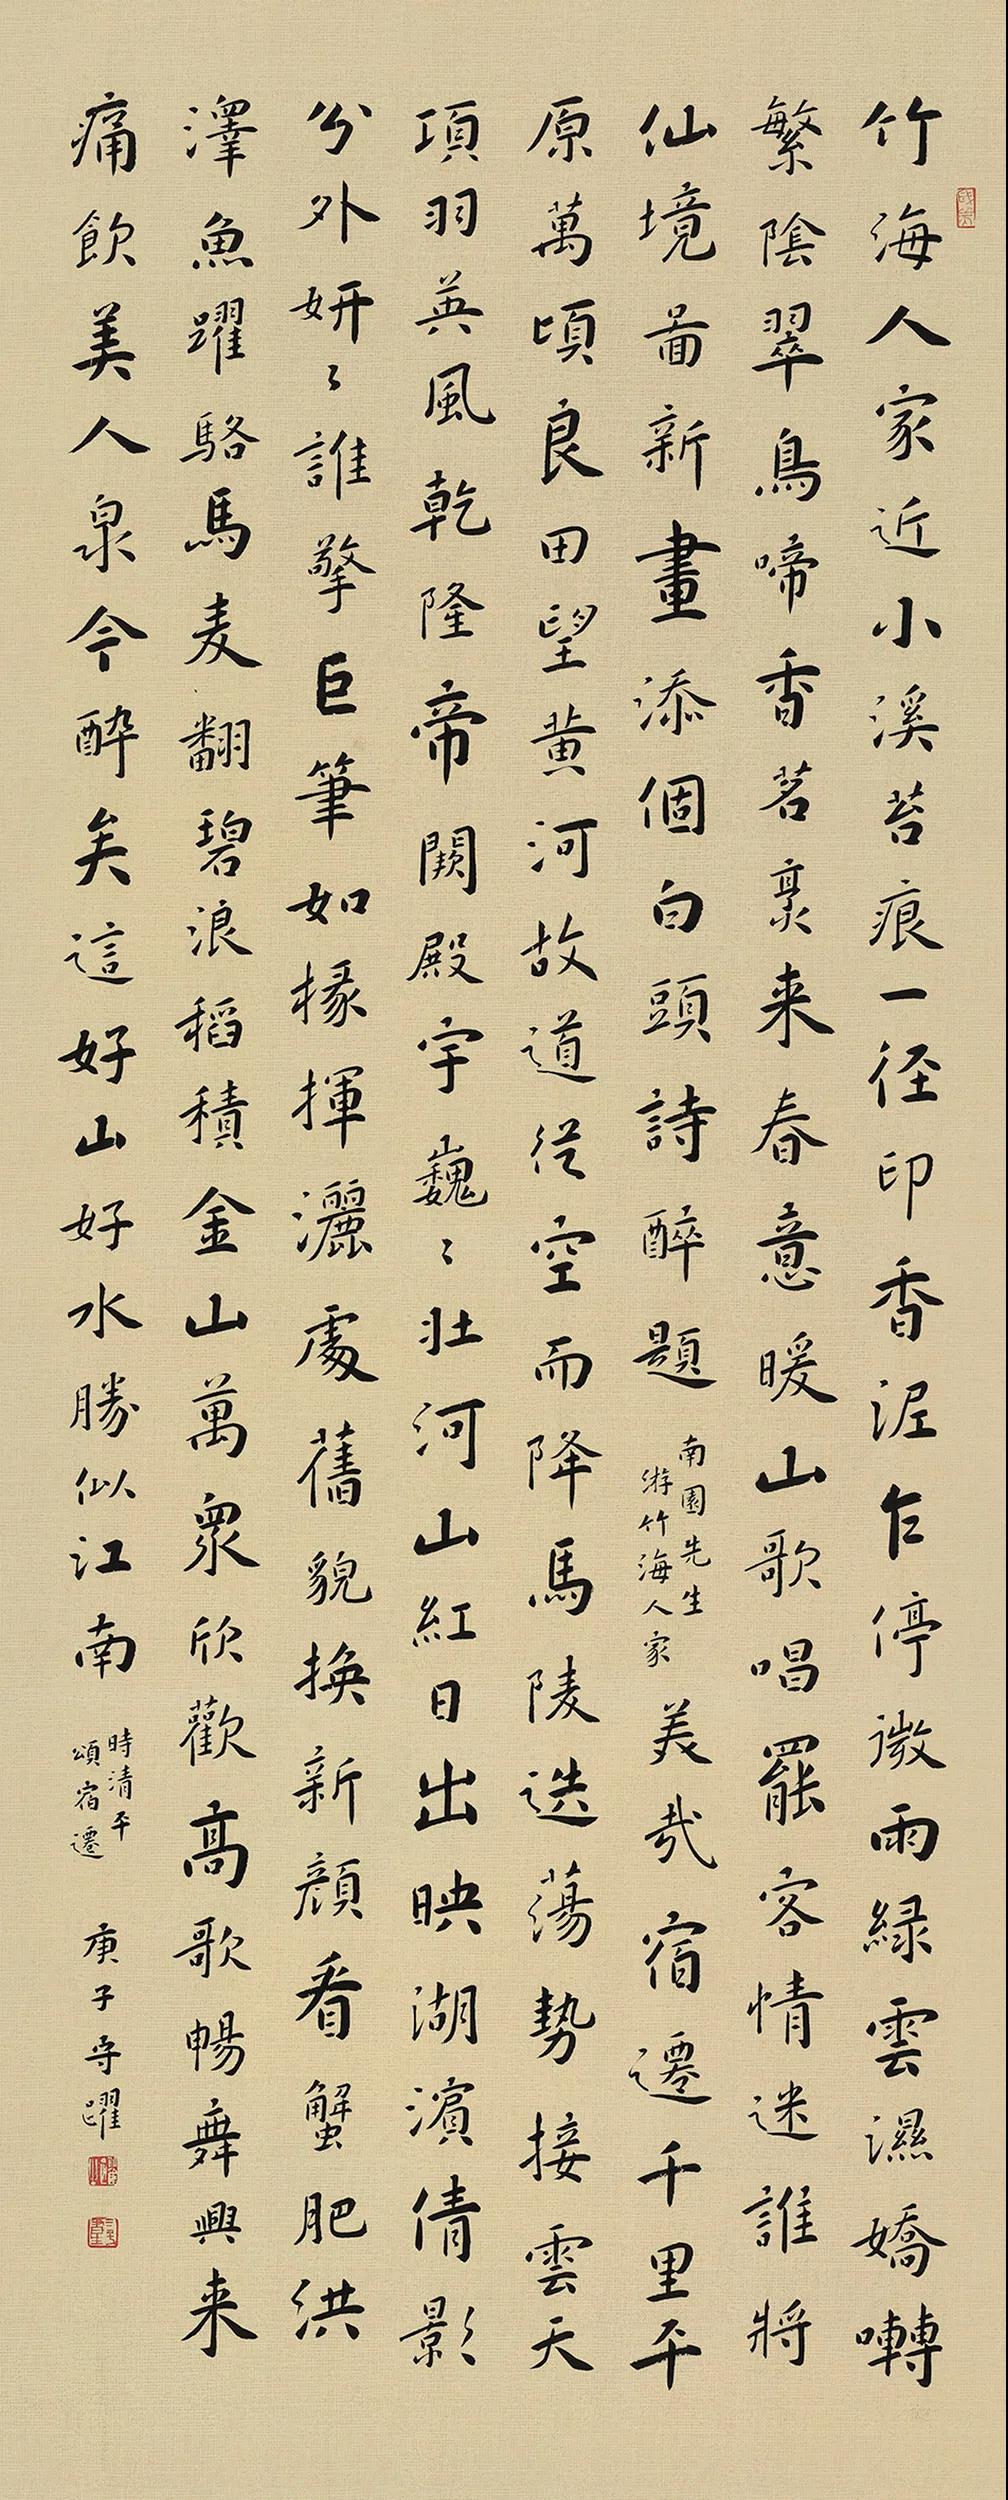 竹海人家近小溪苔痕一径印香泥乍停微雨緑雲濕嬌囀
繁陰翠鳥啼香茗裊来春意暖山歌唱罷客情迷誰將
仙境啚新畫添個白頭詩醉題
南園先生
游竹海人家
美哉宿遷千里平
原萬頃良田望黄河故道從空而降馬陵迭蕩勢接雲天
項羽英風乾隆帝闕殿宇巍〻壮河山紅日出映湖濱倩影
分外妍〻誰擎巨筆如椽揮灑處舊貌换新顔看蟹肥洪
澤魚躍駱馬麦翻碧浪稻積金山萬衆欣歡高歌暢舞興来
痛飲美人泉今醉矣這好山好水勝似江南
時清平
頌宿遷
庚子守躍